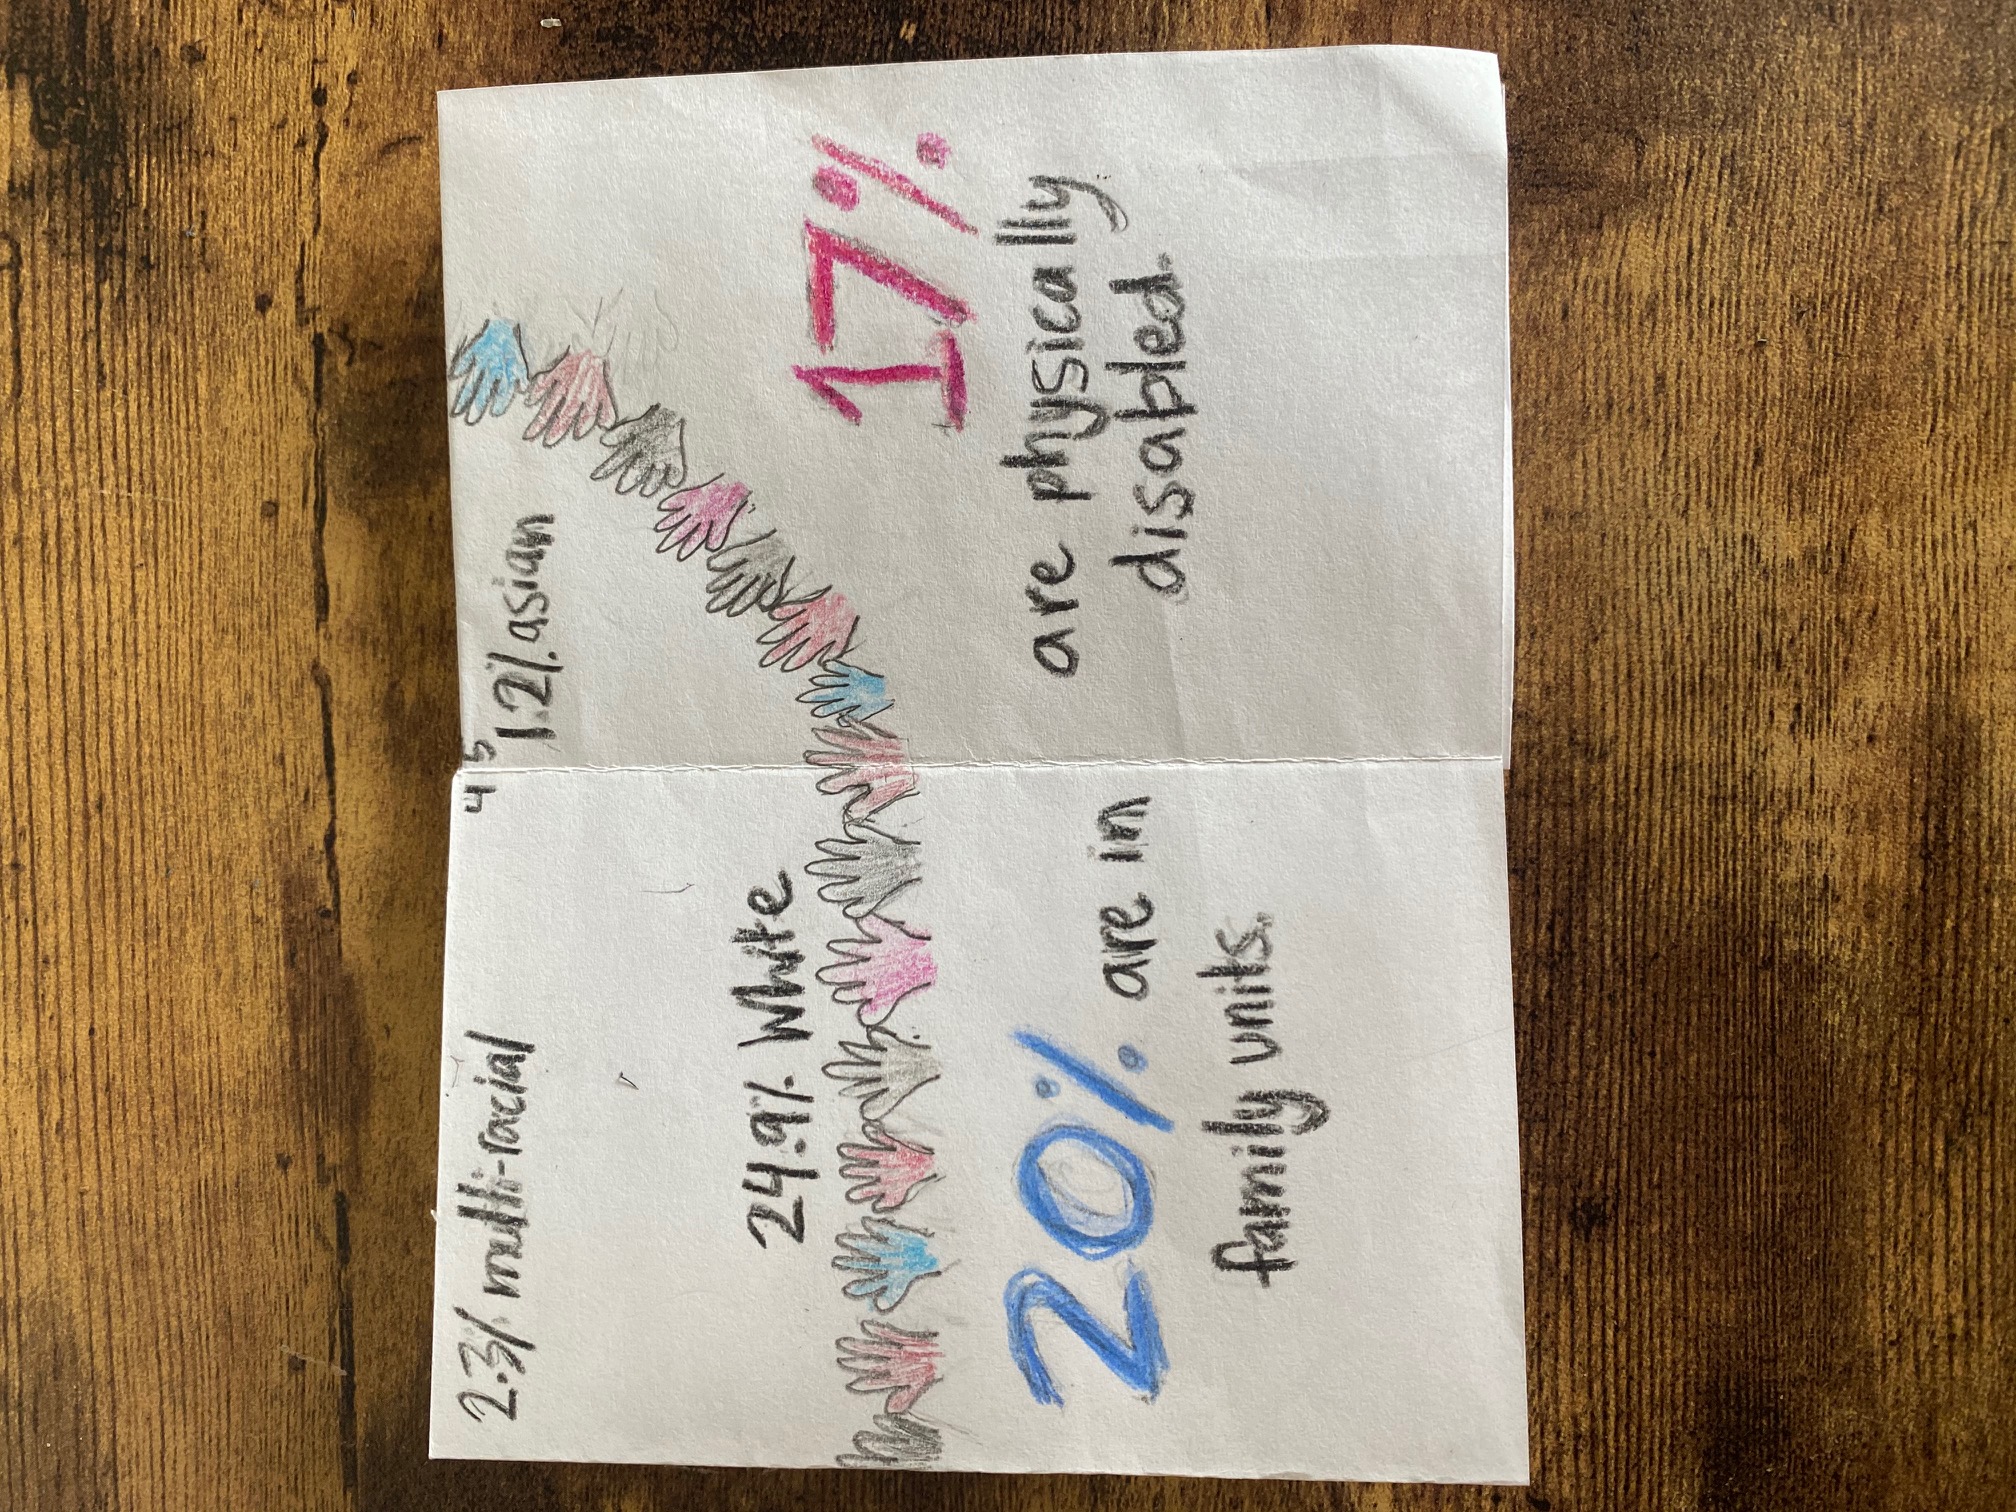 2.3% multi-racial
4
24.9% White
20% are in
family units.
5
1.2% asian
17%
are physically
disabled.